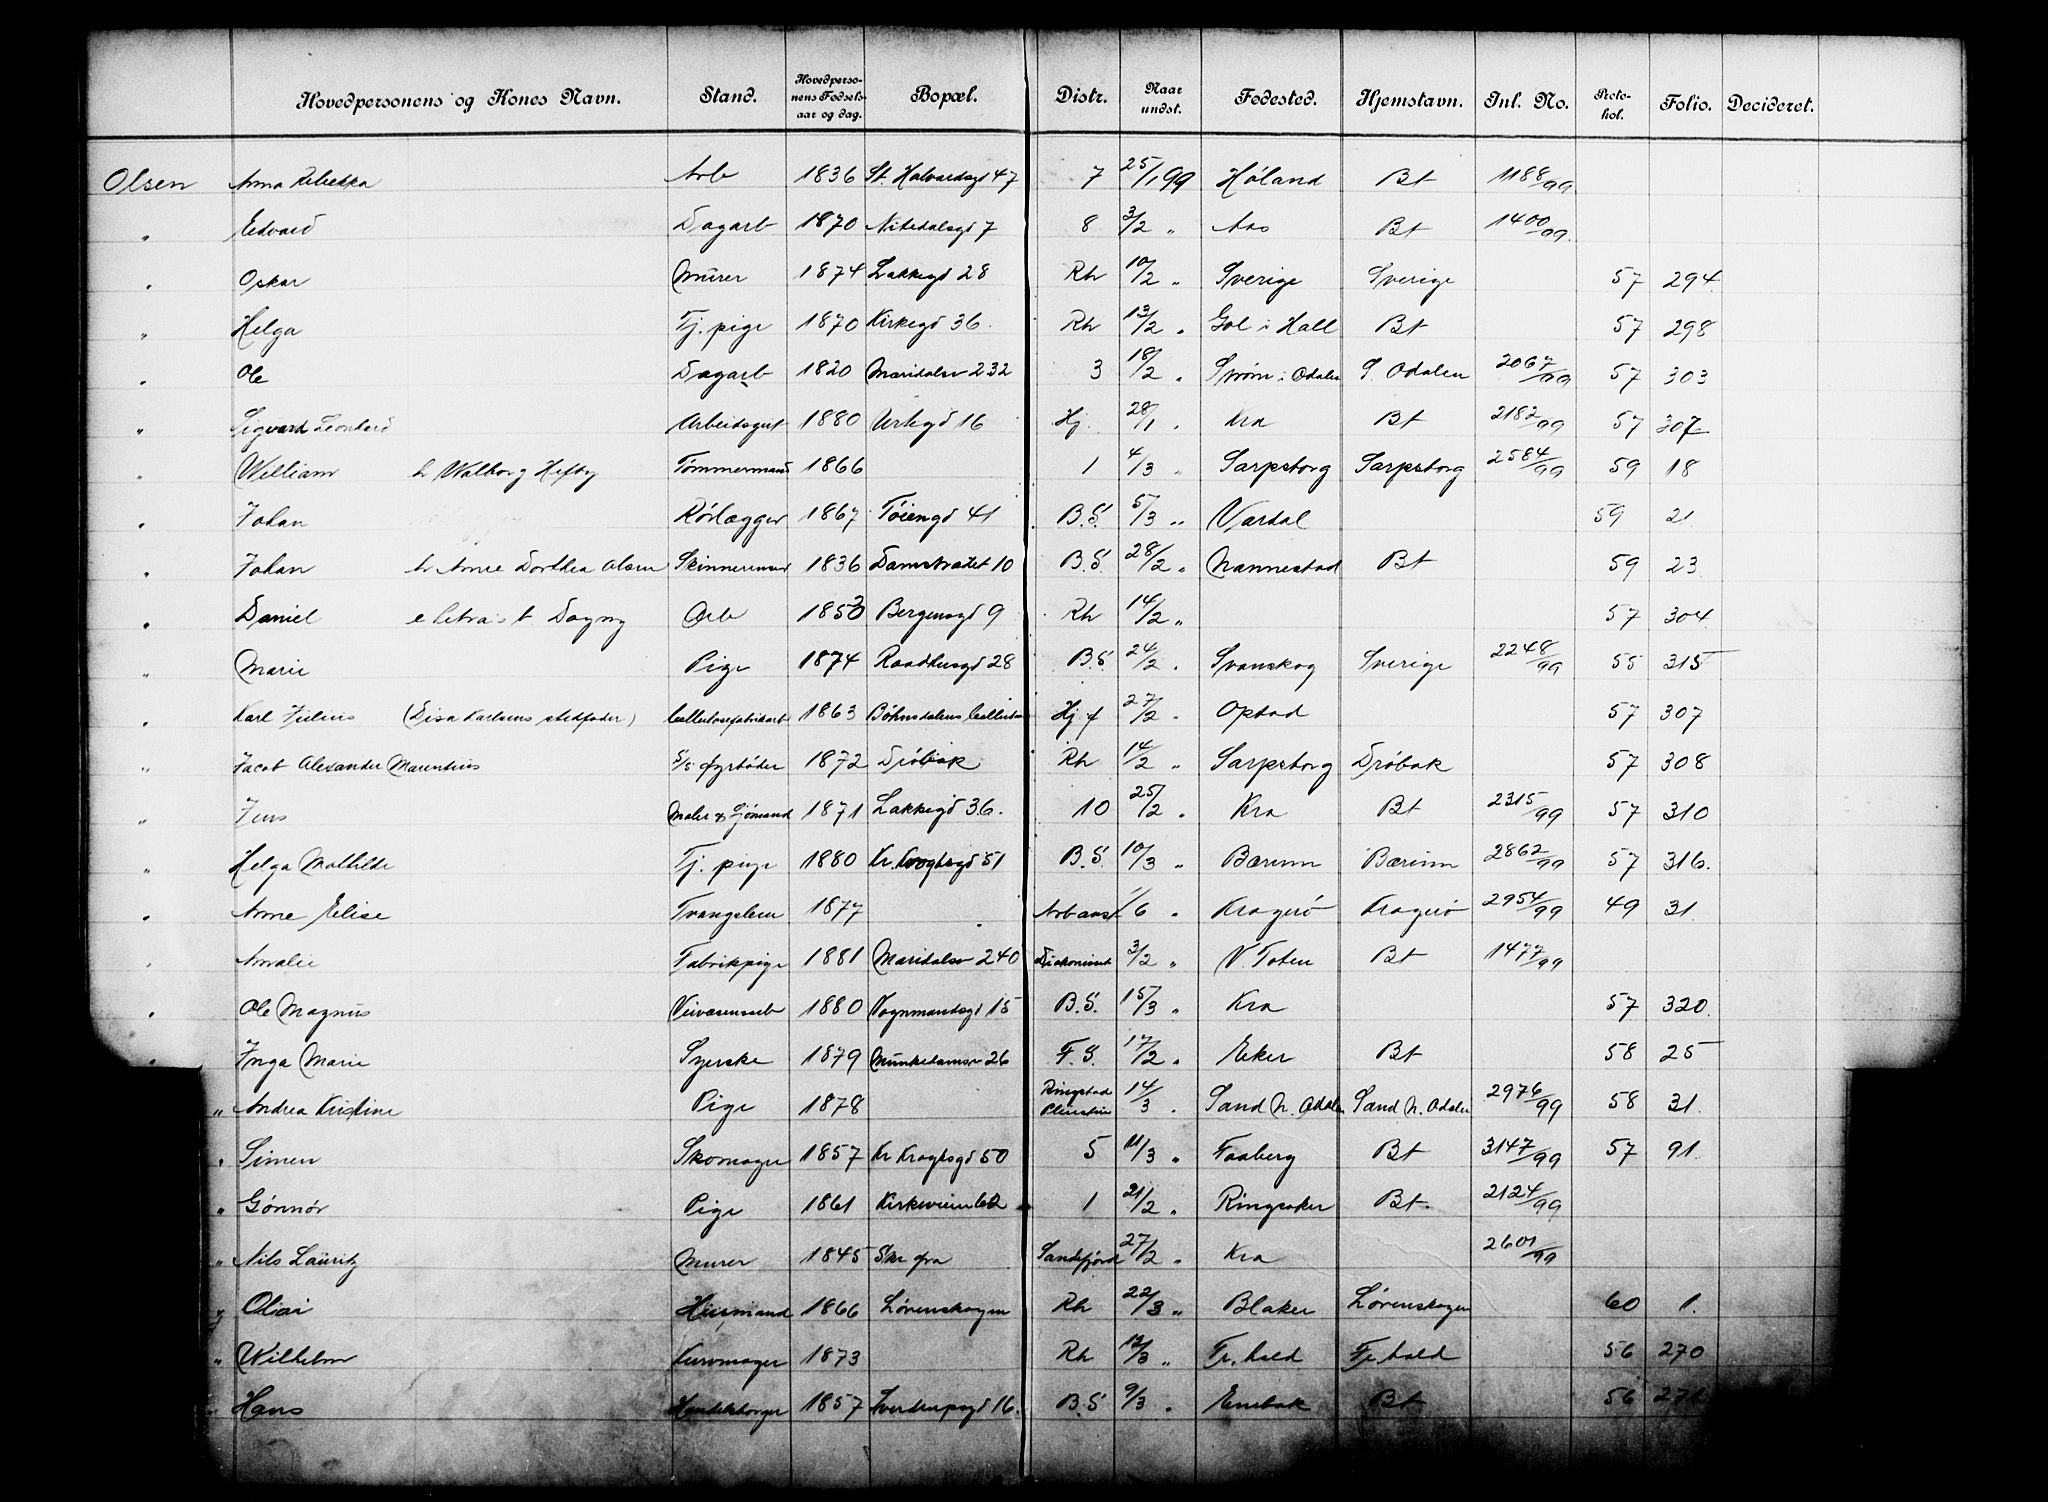 Hovedpersonens og Kones Navn. Stand. Hovedpersonens Fødselsaar og dag. Bopæl. Distr. Naar undst. Fødested. Hjemstavn. Inl. No. Protokol. Folio. Decideret.
Olsen Anna Rebekka Arb 1836 St. Halvardsgd 47 7 25/1 99 Høland Bt 1188/99
" Edvard Dagarb 1870 Nitedalsgd 7 8 3/2 " Aas Bt 1400/99.
" Oskar Murer 1874 Lakkegd 28 Rh 10/2 " Sverige Sverige 57 294
" Helga Tj. pige 1870 Kirkegd 36. Rh 13/2 " Gol i Hall Bt 57 298
" Ole Dagarb 1820 Maridalsv 232 3 18/2 " Strøm i Odalen S. Odalen 2067/99 57 303
" Sigvard Leonhard Arbeidsgut 1880 Urtegd 16 Hj. 28/1 " Kra Bt 2182/99 57 307
" William h Walborg Hefty Tømmermand 1866 1 4/3 " Sarpsborg Sarpsborg 2584/99 59 18
" Johan Rørlægger 1867 Tøiengd 41 B.S. 5/3 " Vardal 59 21
" Johan h Anne Dorthea Olsen Skinnerensed 1836 Damstrædet 10 B.S. 28/2 " Nannestad Bt 59 23
" Daniel e Petra s b. Dagny Arb 1853 Bergensgd 9 Rh 14/2 " 57 304
" Marie Pige 1874 Raadhusgd 28 B.S. 24/2 " Svanskog Sverige 2248/99 55 315
" Karl Julius (Elsa Karlsens stedfader) Cellulosefabrikarb 1863 Bøhnsdalens Cellulose Hj. f 27/2 " Opstad 57 307
" Jacob Alexander Mauritius S/S fyrbøder 1872 Drøbak Rh 14/2 " Sarpsborg Drøbak 57 308
" Jens Maler & Sjømand 1871 Lakkegd 36. 10 25/2 " Kra Bt 2315/99 57 310
" Helga Mathilde Tj. pige 1880 Kr. Kroghsgd 51 B.S. 10/3 " Bærum Bærum 2862/99 57 316.
" Anne Elise Tvangslem 1877 Arbanst 1/6 " Kragerø Kragerø 2954/99 49 31.
" Amalie Fabrikpige 1881 Maridalsv 240 Diakonisset 3/2 " V. Toten Bt 1477/99
" Ole Magnus Veivæsensarb 1880 Vognmandsgd 15 B.S. 15/3 " Kra 57 320.
" Inga Marie Syerske 1879 Munkedamsv 26 F.S. 17/2 " Eker Bt 58 25
" Andrea Kristine Pige 1878 Ringstad 14/3 " Sand N. Odalen Sand N. Odalen 2976/99 58 31.
" Simen Skomager 1857 Kr Kroghsgd 50 5 11/3 " Faaberg Bt 3147/99 57 91.
" Gønnør Pige 1861 Kirkeveien 62 1 21/2 " Ringsaker Bt. 2124/99
" Nils Lauritz Murer 1845 Skr fra Sandefjord 27/2 " Kra 2601/99
" Olai Husmand 1866 Lørenskogen Rh 22/3 " Blaker Lørenskogen 60 1.
" Wilhelm Kurvmager 1873 Rh 13/3 " Fr.hald Fr.hald 56 270
" Hans Handelsborger 1857 Sverdrupsgd 16. B.S 9/3 " Enebak Bt 56 271